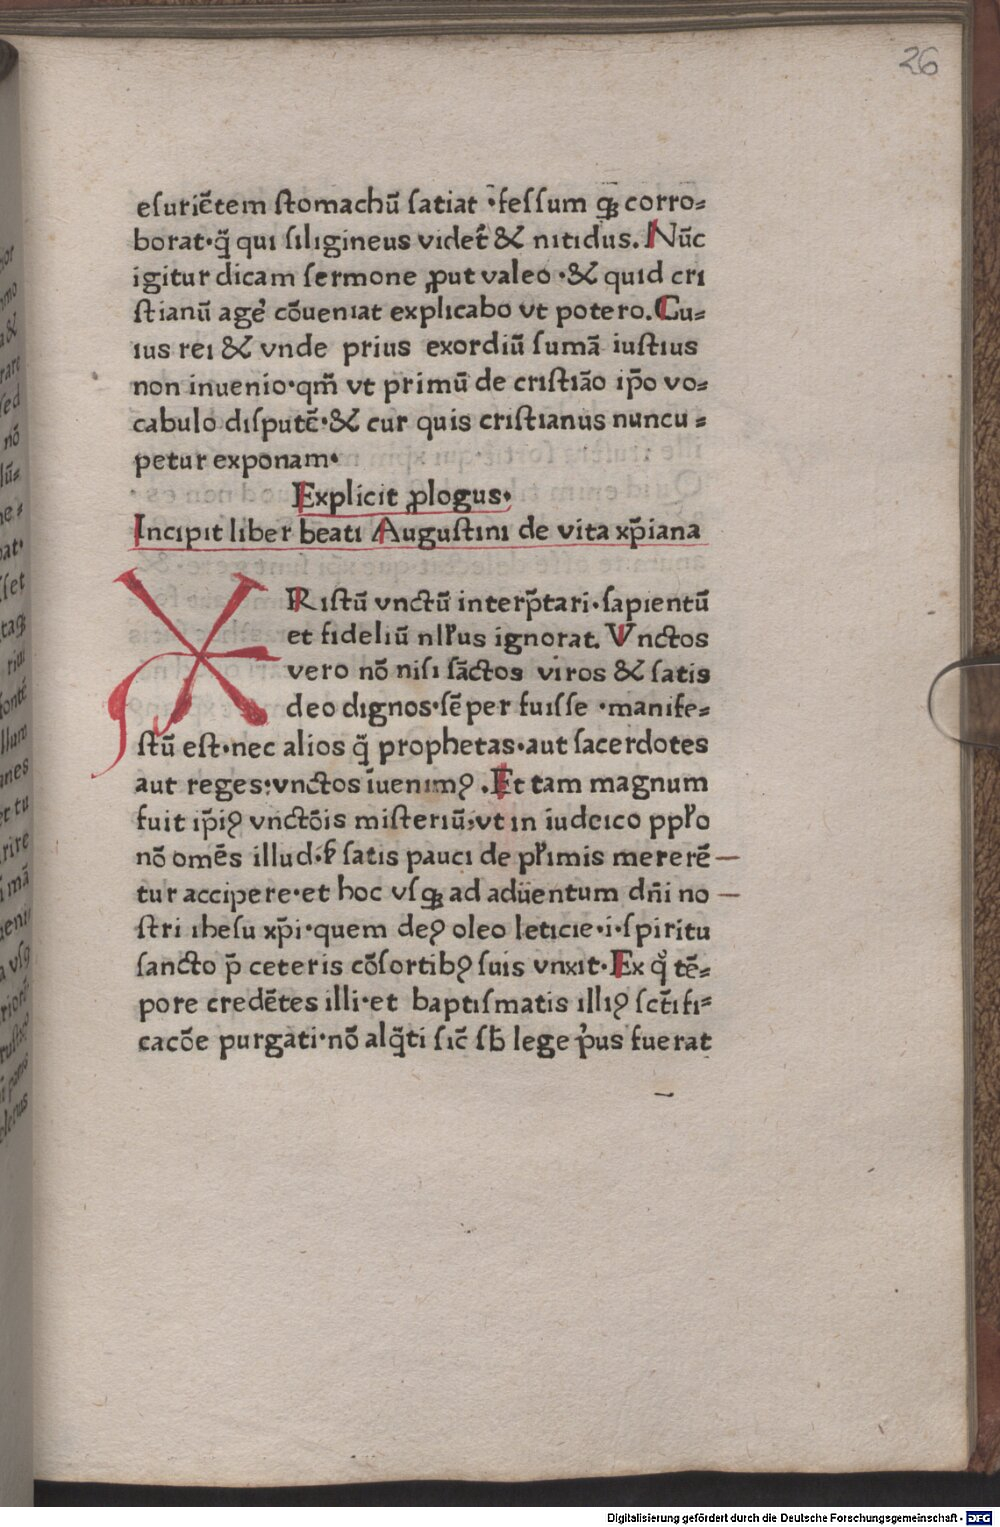 26
esuriētem stomachū satiat ·fessum qꝫ corro⸗
borat·q̄ qui siligineus videt̄ & nitidus. Nūc
igitur dicam sermone ꝓut valeo ·& quid cri
stianū ager̉ cōueniat explicabo vt potero. Cu⸗
ius rei & vnde prius exordiū sumā iustius
non inuenio·qm̄ vt primū de cristiāo ip̄o vo⸗
cabulo disputē·& cur quis cristianus nuncu⸗
petur exponam·
Explicit ꝓlogus·
Incipit liber beati Augustini de vita xp̄iana
XRistū vnctū interp̄tari·sapientū
et fideliū nll̉us ignorat. Vnctos
vero nō nisi sāctos viros & satis
deo dignos·sēper fuisse ·manife⸗
stū est·nec alios q̄ prophetas·aut sacerdotes
aut reges:vnctos īuenimꝰ. Et tam magnum
fuit ip̄iꝰ vnctōis misteriū,vt in iudeico ppl̉o
nō omēs illud·s̉ satis pauci de pl̉imis mererē
tur accipere·et hoc vsqꝫ ad aduentum dn̄i no
stri ihesu xp̄i·quem deꝰ oleo leticie·i·spiritu
sancto p̄ ceteris cōsortibꝰ suis vnxit· Ex q̊ tē⸗
pore credētes illi·et baptismatis illiꝰ sct̄ifi⸗
cacōe purgati·nō alq̄ti sic̄ sb̄ lege p̉us fuerat
Digitalisierung gefördert durch die Deutsche Forschungsgemeinschaft - DFG